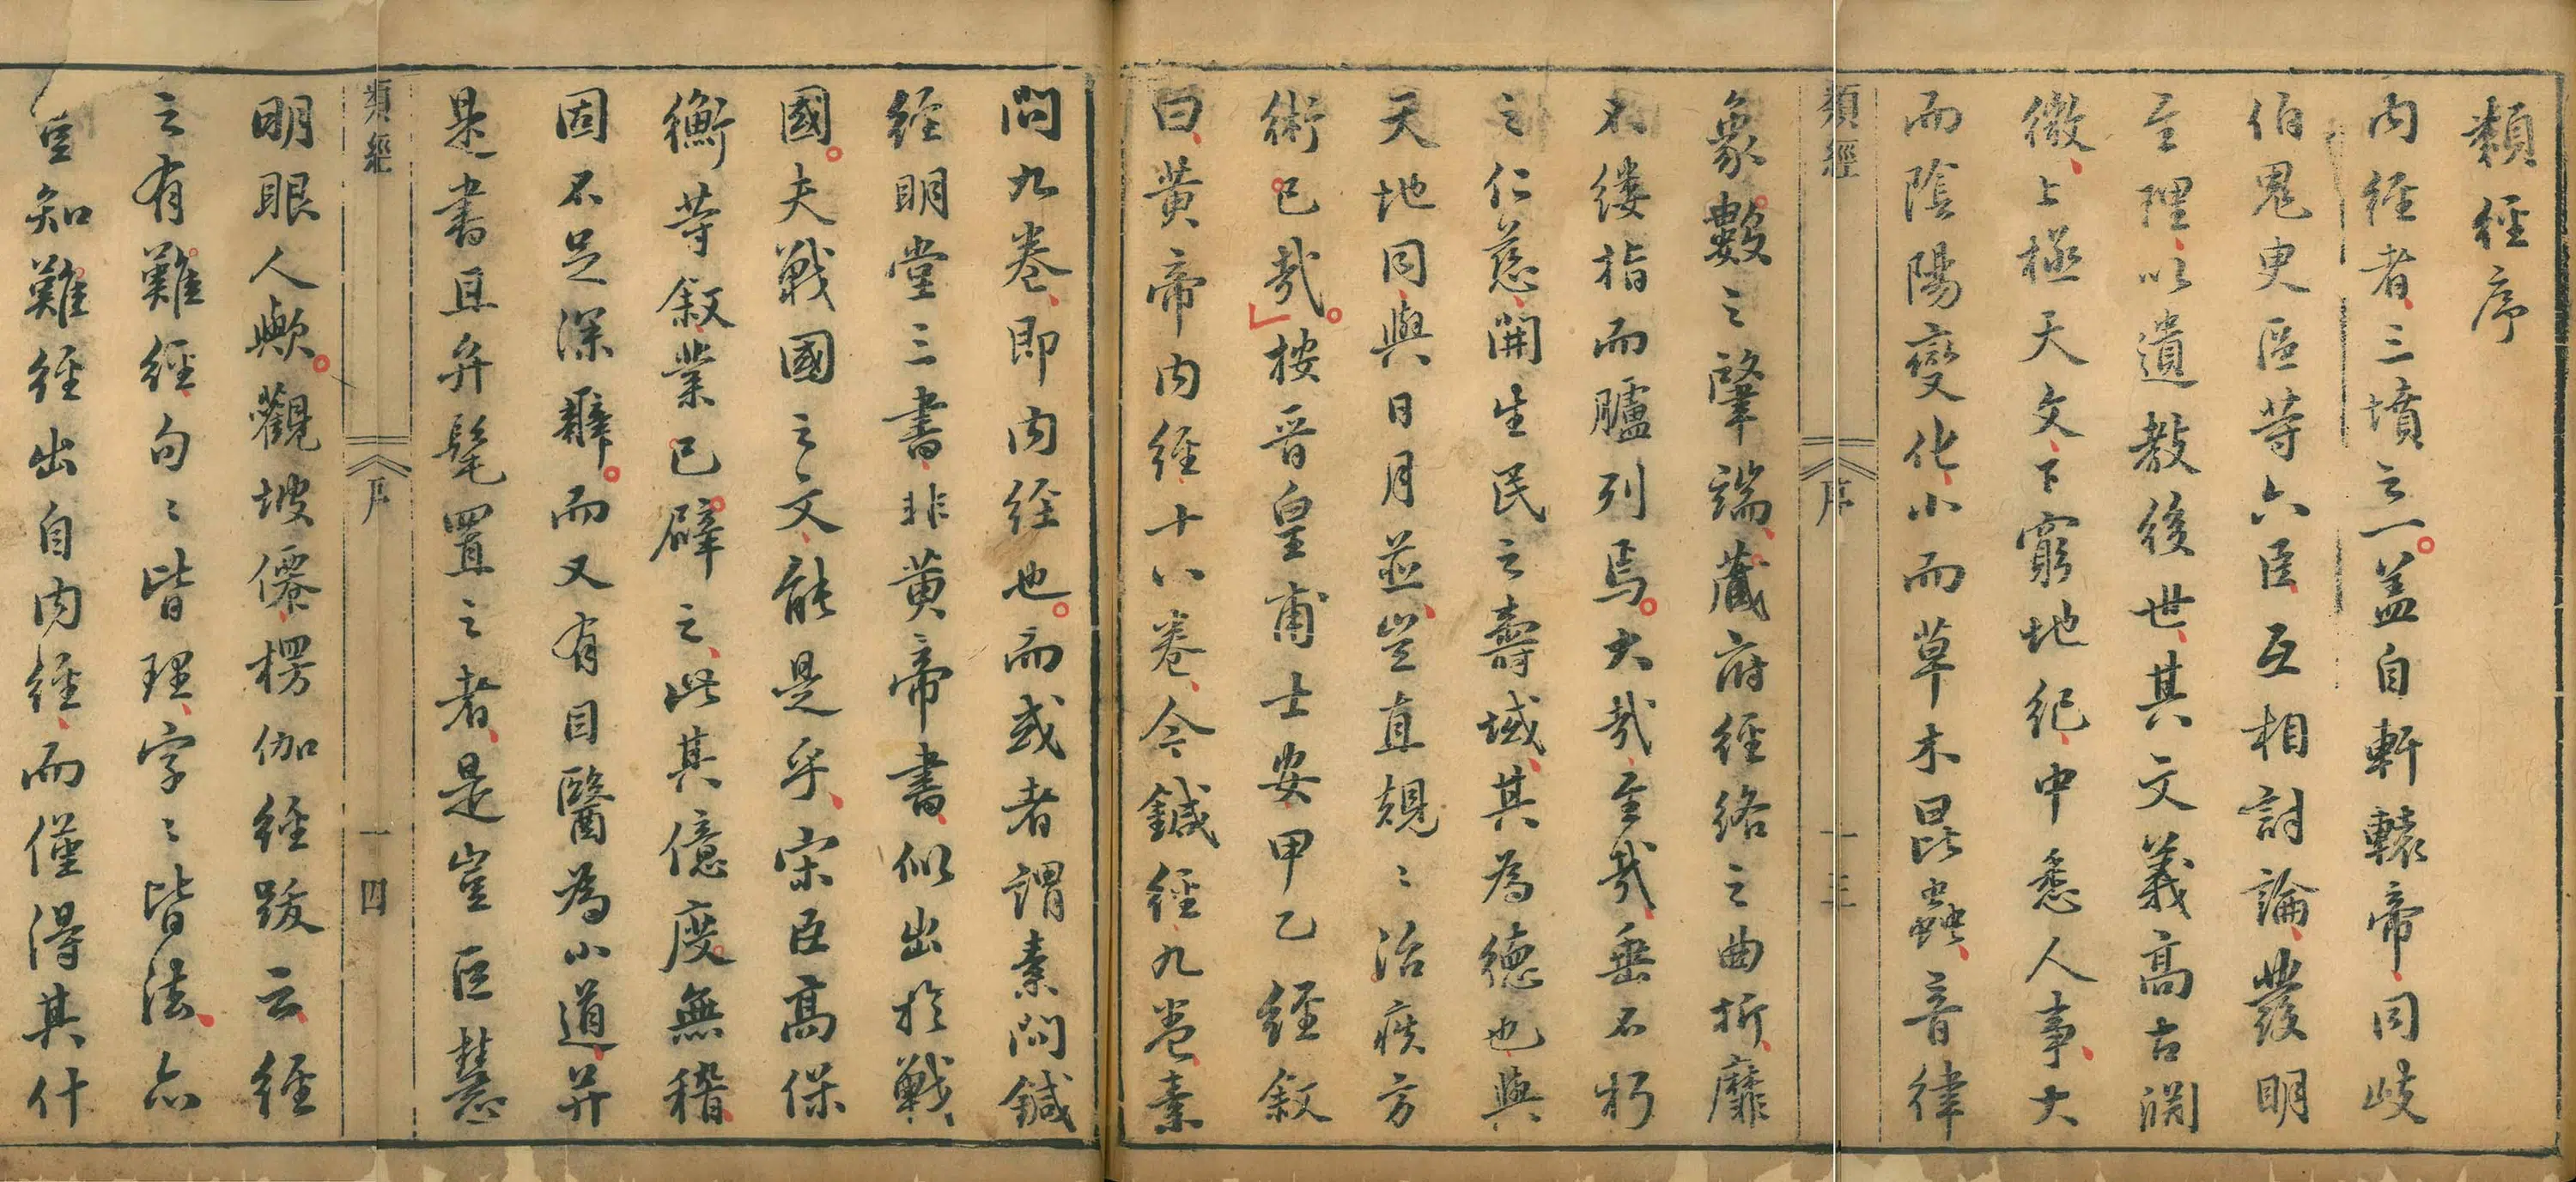 類經序
内经者三墳之一盖自軒轅帝同歧
伯鬼臾區等六臣互相討論發明
至理以遺教後世其文義高古淵
微上極天文下窮地紀中悉人事大
而陰陽變化小而草木昆蟲音律
類經 序 一三
象數之肇端藏府经络之曲折靡
不缕指而臚列焉大哉至哉垂不朽
之仁慈開生民之壽域其為德也與
天地同與日月並豈直規〻治疾方
術已哉按晋皇甫士安甲乙经叙
曰黄帝内经十八卷今鍼经九卷素
問九卷即内经也而或者謂素问鍼
经明堂三書非黄帝書似出於戰
國夫戰國之文能是乎宋臣高保
衡等叙業已辟之此其億度無稽
固不足深辭而又有目醫為小道并
是書且弁髦置之者是豈巨慧
類經 序 一四
明眼人歟觀坡僊楞伽经跋云经
之有難经句〻皆理字〻皆法亦
豈知難经出自内经而僅得其什